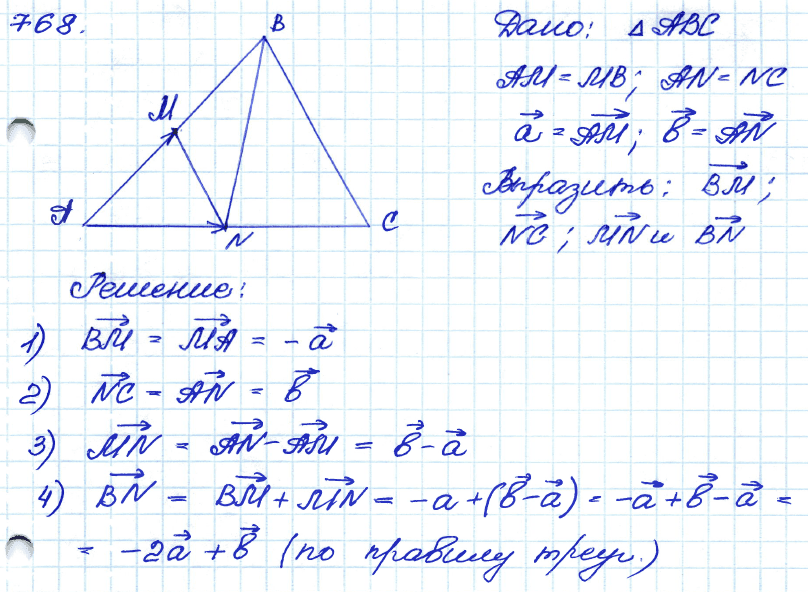 768.
B
M
A
N
C
Дано: △ABC
AM = MB; AN = NC
a⃗ = AM⃗; b⃗ = AN⃗
Выразить: BM⃗;
NC⃗; MN⃗ и BN⃗
Решение:
1) BM⃗ = MA⃗ = -a⃗
2) NC⃗ = AN⃗ = b⃗
3) MN⃗ = AN⃗ - AM⃗ = b⃗ - a⃗
4) BN⃗ = BM⃗ + MN⃗ = -a + (b⃗ - a⃗) = -a⃗ + b⃗ - a⃗ =
= -2a⃗ + b⃗ (по правилу треуг.)